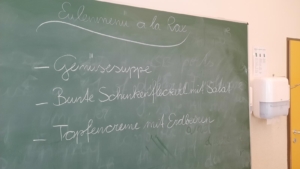 Eulinmenü a la Rax
– Gemüsesuppe
– Bunte Schinkenfleckerl mit Salat
– Topfencreme mit Erdbeeren